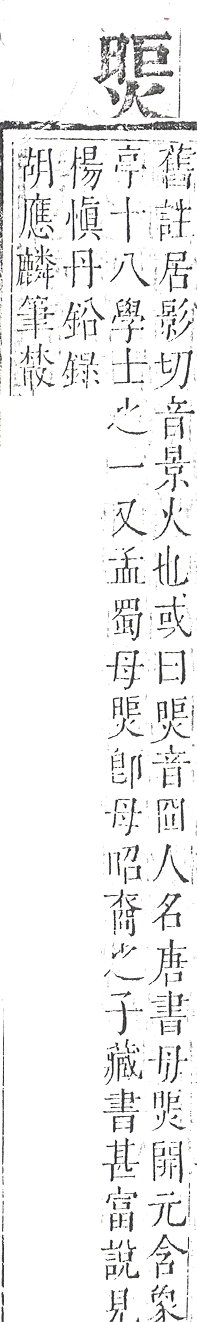 煚
舊註居影切音景火也或曰煚音囧人名唐書毋煚開元含象
亭十八學士之一又孟蜀母煚卽母昭裔之子藏書甚富說見
楊愼丹鉛錄
胡應麟筆叢